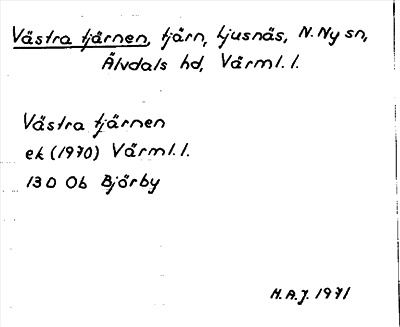 Västra tjärnen, tjärn, Ljusnäs, N. Ny sn,
Älvdals hd, Värml. l.
Västra tjärnen
ek (1970) Värml. l.
13D Ob Björby
H.A.J. 1971